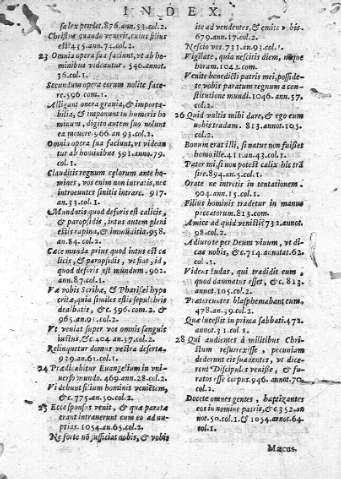 INDEX.
sæleus perdat. 876. ann. 53. col. 2.
Christus quando venerit, cuius filius
est? 435. ann. 71. col. 2.
23 Omnia opera sua faciunt, vt ab hominibus
videantur. 546. annot.
36. col. 1.
Secundum opera eorum nolite facere.
596. com. 1.
Alligant onera grauia, & importabilia,
& imponunt in humeros hominum,
digito autem suo nolunt
ea mouere. 566. an 93. col. 2.
Omnia opera sua faciunt, vt videantur
ab hominibus. 591. anno. 79.
col. 1.
Clauditis regnum cælorum ante homines,
vos enim non intratis, nec
introeuntes sinitis intrare. 917.
an. 33. col. 1.
Mundatis quod deforis est calicis,
& paropsidis, intus autem pleni
estis rapina, & immundicia. 958.
an. 84. col. 2.
Caece munda prius quod intus est calicis,
& paropsidis, vt fiat id,
quod deforis est mundum. 962.
ann. 87. col. 1.
Væ vobis Scribæ, & Pharisæi hypocritæ,
quia similes estis sepulchris
dealbatis, &c. 596. com. 2. &
965. an 91. col. 2.
Vt veniat super vos omnis sanguis
iustus, &c. 404. an. 57. col. 2.
Relinquetur domus vestra deserta.
929. an. 61. col. 1.
24 Prædicabitur Euangelium in vniuerso
mundo. 469. ann. 28. col. 2.
Videbunt filium hominis venientem,
&c. 775. an. 50. col. 2.
25 Ecce sponsus venit, & quæ paratæ
erant intrauerunt cum eo ad nuptias.
1054. an. 65. col. 2.
Ne forte non sufficiat nobis, & vobis
ite ad vendentes, & emite vobis.
679. ann. 17. col. 2.
Nescio vos. 731. an. 93. col. 1.
Vigilate, quia nescitis diem, neque
horam. 1042. com.
Venite benedicti patris mei, possidete
vobis paratum regnum a constitutione
mundi. 1046. an. 57.
col. 2.
26 Quid vultis mihi dare, & ego eum
vobis tradam. 813. annot. 105.
col. 2.
Bonum erat illi, si natus non fuisset
homo ille. 411. an. 43. col. 1.
Pater mi si non potest calix hic transire.
894. an. 5. col. 1.
Orate ne intretis in tentationem.
904. ann. 15. col. 1.
Filius hominis tradetur in manus
peccatorum. 813. com.
Amice ad quid venisti? 732. annot.
98. col. 2.
Adiuro te per Deum viuum, vt dicas
nobis, &c. 714. annat. 62.
col. 2.
Videns Iudas, qui tradidit eum,
quod damnatus esset, &c. 813.
annot. 105. col. 2.
Prætereuntes blasphemabant eum.
478. an. 39. col. 2.
Quæ lucescit in prima sabbati. 472.
annot. 31. col. 1.
28 Qui audientes à militibus Christum
resurrexisse, pecuniam
dederunt eis suadentes, vt dicerent
Discipulos venisse, & furatos
esse corpus. 946. annot. 70.
col. 1.
Docete omnes gentes, baptizantes
eos in nomine patris, &c. 352. annot.
50. col. 1. & 1054. annot. 64.
col. 1.
Marcus.